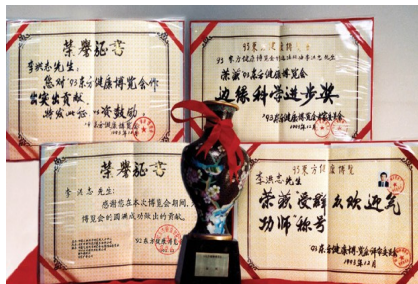 荣誉证书
李洪志先生：
您对'93东方健康博览会作
出突出贡献，
特发此证，以资鼓励
'93东方健康博览会
1993年12月
'93东方健康博览会
荣获'93东方健康博览会
边缘科学进步奖
'93东方健康博览会评审委员会
1993年12月
荣誉证书
李洪志先生：
感谢您在本次博览会期间，
博览会的圆满成功做出的贡献。
'93东方健康博览
'93东方健康博览
李洪志先生
荣获受群众欢迎气
功师"称号
'93东方健康博览会评审委员会
1993年12月